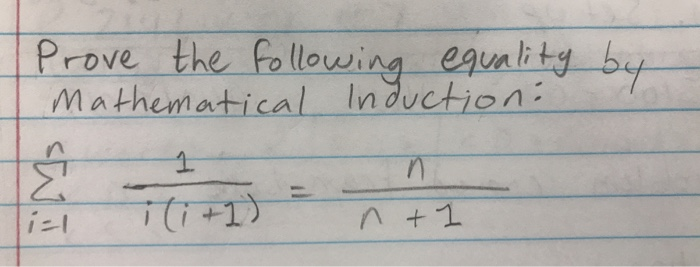 Prove the following equality by
Mathematical Induction:
n
∑ 1/(i(i+1)) = n/(n+1)
i=1